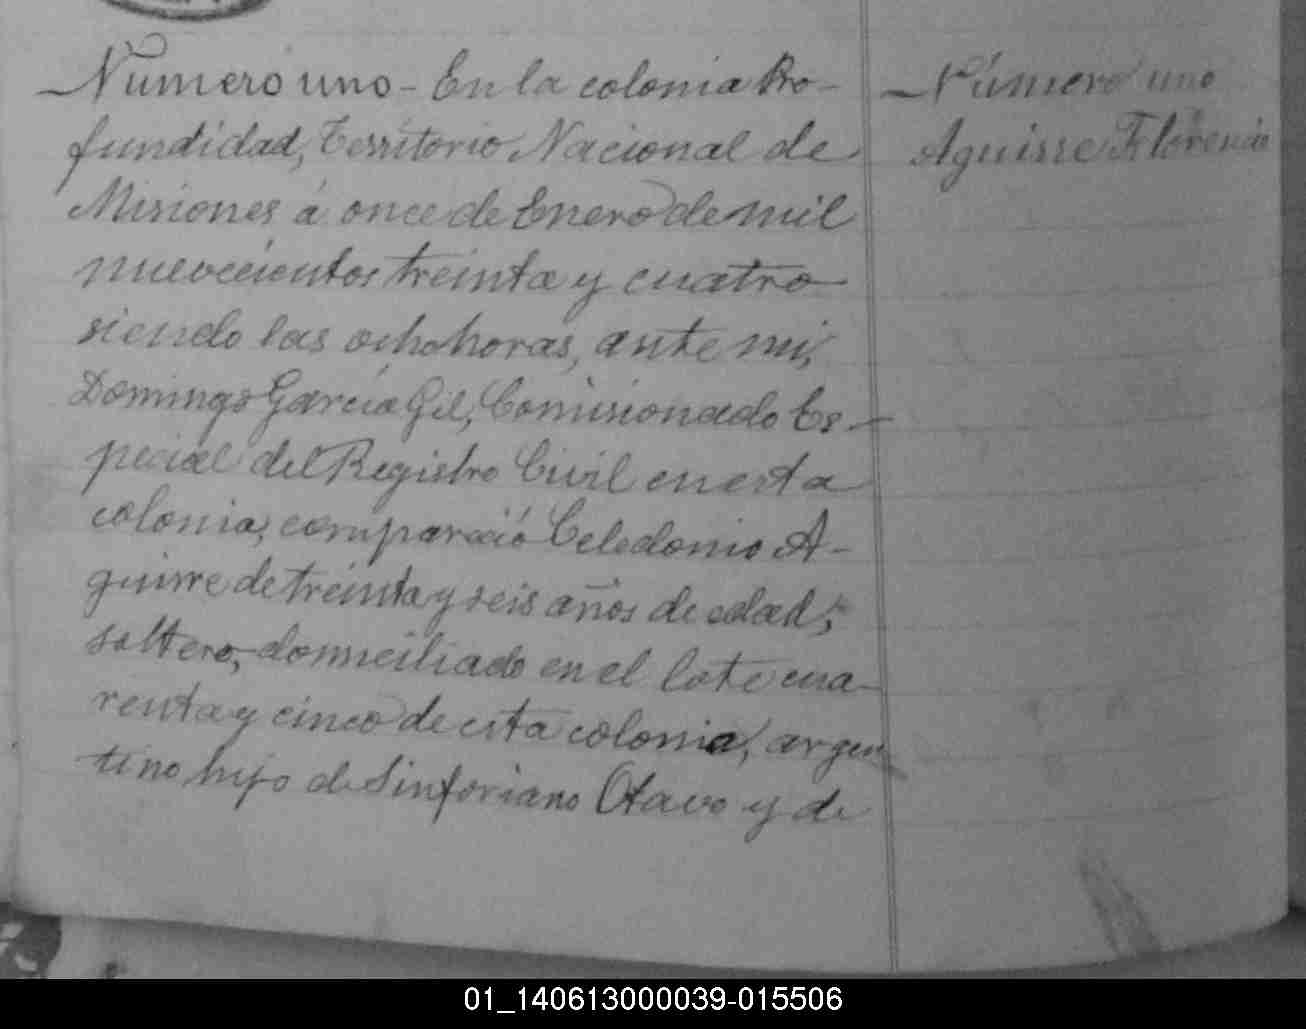 Numero uno - En la colonia Pro-
fundidad, Territorio Nacional de
Misiones á once de Enero de mil
nuevecientos treinta y cuatro
siendo las ocho horas, ante mi,
Domingo García Gil, Comisionado Es-
pecial del Registro Civil en esta
colonia, compareció Celedonio A-
guirre de treinta y seis años de edad,
soltero, domiciliado en el lote cua-
renta y cinco de esta colonia, argen
tino hijo de Sinforiano Otavo y de
Número uno
Aguirre Florencio
01_140613000039-015506